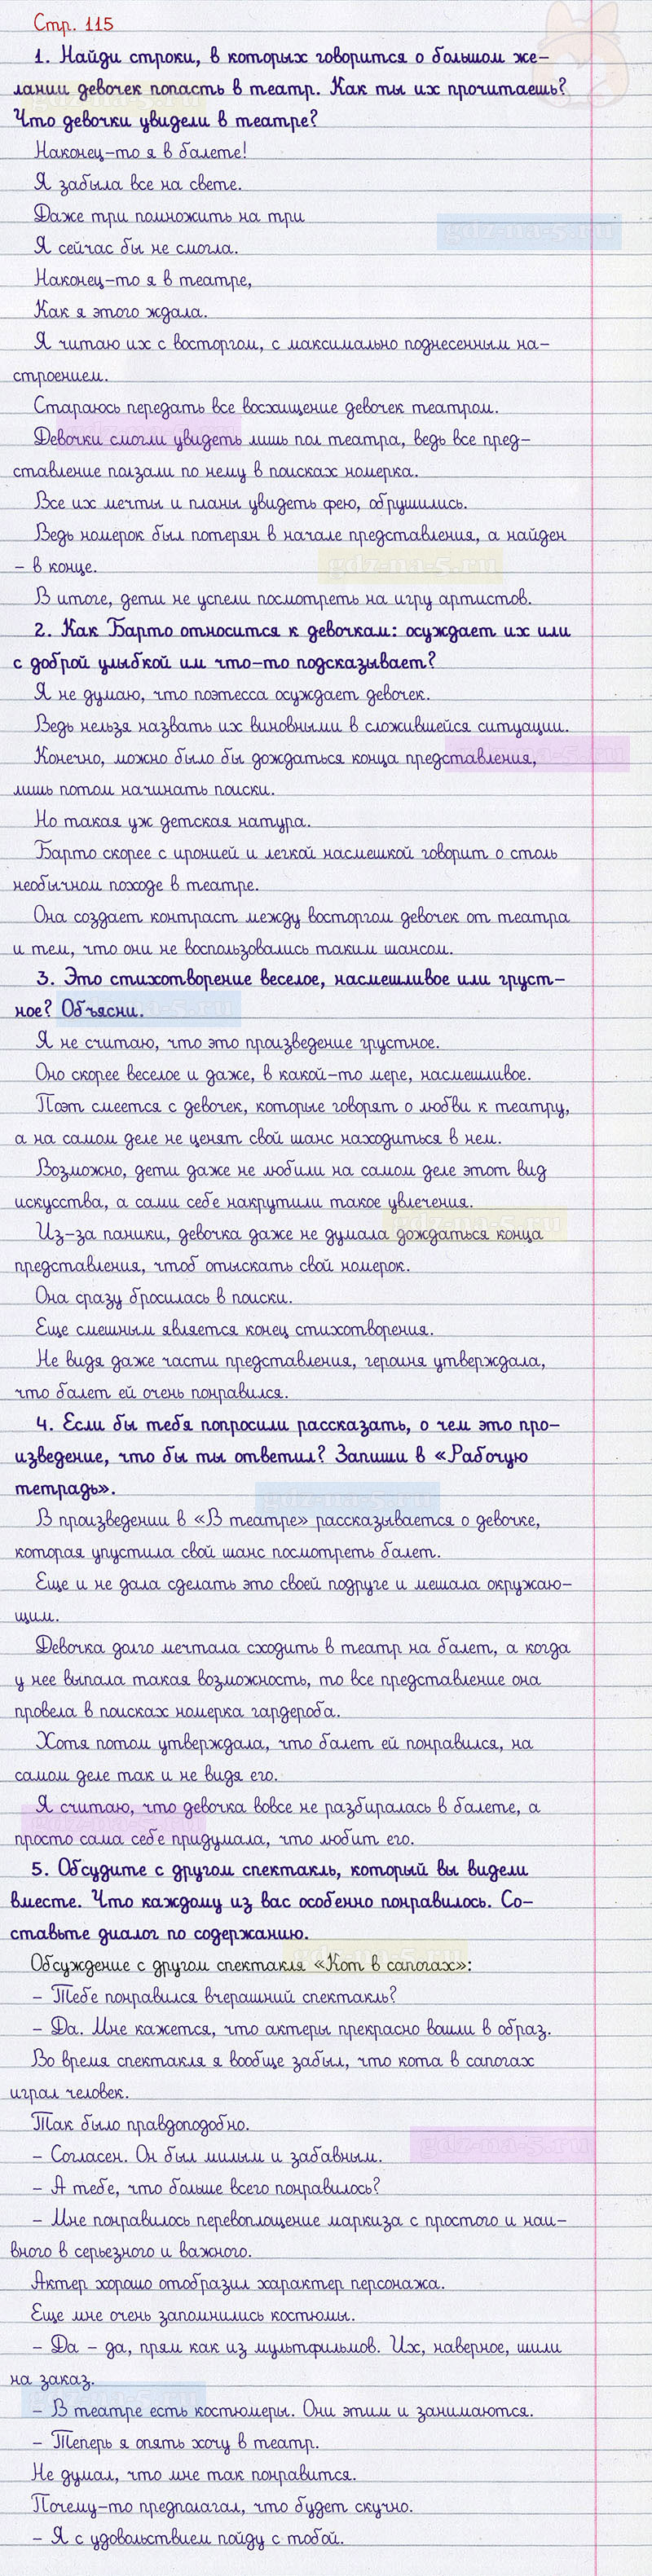 Стр. 115
1. Найди строки, в которых говорится о большом же-
лании девочек попасть в театр. Как ты их прочитаешь?
Что девочки увидели в театре?
Наконец-то я в балете!
Я забыла все на свете.
Даже три помножить на три
Я сейчас бы не смогла.
Наконец-то я в театре,
Как я этого ждала.
Я читаю их с восторгом, с максимально поднесенным на-
строением.
Стараюсь передать все восхищение девочек театром.
Девочки смогли увидеть лишь пол театра, ведь все пред-
ставление ползали по нему в поисках номерка.
Все их мечты и планы увидеть фею, обрушились.
Ведь номерок был потерян в начале представления, а найден
- в конце.
gdz-na-5.ru
В итоге, дети не успели посмотреть на игру артистов.
2. Как Барто относится к девочкам: осуждает их или
с доброй улыбкой им что-то подсказывает?
Я не думаю, что поэтесса осуждает девочек.
Ведь нельзя назвать их виновными в сложившейся ситуации.
Конечно, можно было бы дождаться конца представления,
лишь потом начинать поиски.
Но такая уж детская натура.
Барто скорее с иронией и легкой насмешкой говорит о столь
необычном походе в театре.
Она создает контраст между восторгом девочек от театра
и тем, что они не воспользовались таким шансом.
3. Это стихотворение веселое, насмешливое или груст-
ное? Объясни.
Я не считаю, что это произведение грустное.
Оно скорее веселое и даже, в какой-то мере, насмешливое.
Поэт смеется с девочек, которые говорят о любви к театру,
а на самом деле не ценят свой шанс находиться в нем.
Возможно, дети даже не любили на самом деле этот вид
искусства, а сами себе накрутили такое увлечения.
Из-за паники, девочка даже не думала дождаться конца
представления, чтоб отыскать свой номерок.
Она сразу бросилась в поиски.
Еще смешным является конец стихотворения.
Не видя даже части представления, героиня утверждала,
что балет ей очень понравился.
4. Если бы тебя попросили рассказать, о чем это про-
изведение, что бы ты ответил? Запиши в «Рабочую
тетрадь».
В произведении в «В театре» рассказывается о девочке,
которая упустила свой шанс посмотреть балет.
Еще и не дала сделать это своей подруге и мешала окружаю-
щим.
Девочка долго мечтала сходить в театр на балет, а когда
у нее выпала такая возможность, то все представление она
провела в поисках номерка гардероба.
Хотя потом утверждала, что балет ей понравился, на
самом деле так и не видя его.
Я считаю, что девочка вовсе не разбиралась в балете, а
просто сама себе придумала, что любит его.
5. Обсудите с другом спектакль, который вы видели
вместе. Что каждому из вас особенно понравилось. Со-
ставьте диалог по содержанию.
Обсуждение с другом спектакля «Кот в сапогах»:
- Тебе понравился вчерашний спектакль?
- Да. Мне кажется, что актеры прекрасно вошли в образ.
Во время спектакля я вообще забыл, что кота в сапогах
играл человек.
Так было правдоподобно.
- Согласен. Он был милым и забавным.
- А тебе, что больше всего понравилось?
- Мне понравилось перевоплощение маркиза с простого и наи-
вного в серьезного и важного.
Актер хорошо отобразил характер персонажа.
Еще мне очень запомнились костюмы.
- Да - да, прям как из мультфильмов. Их, наверное, шили
на заказ.
- В театре есть костюмеры. Они этим и занимаются.
- Теперь я опять хочу в театр.
Не думал, что мне так понравится.
Почему-то предполагал, что будет скучно.
- Я с удовольствием пойду с тобой.